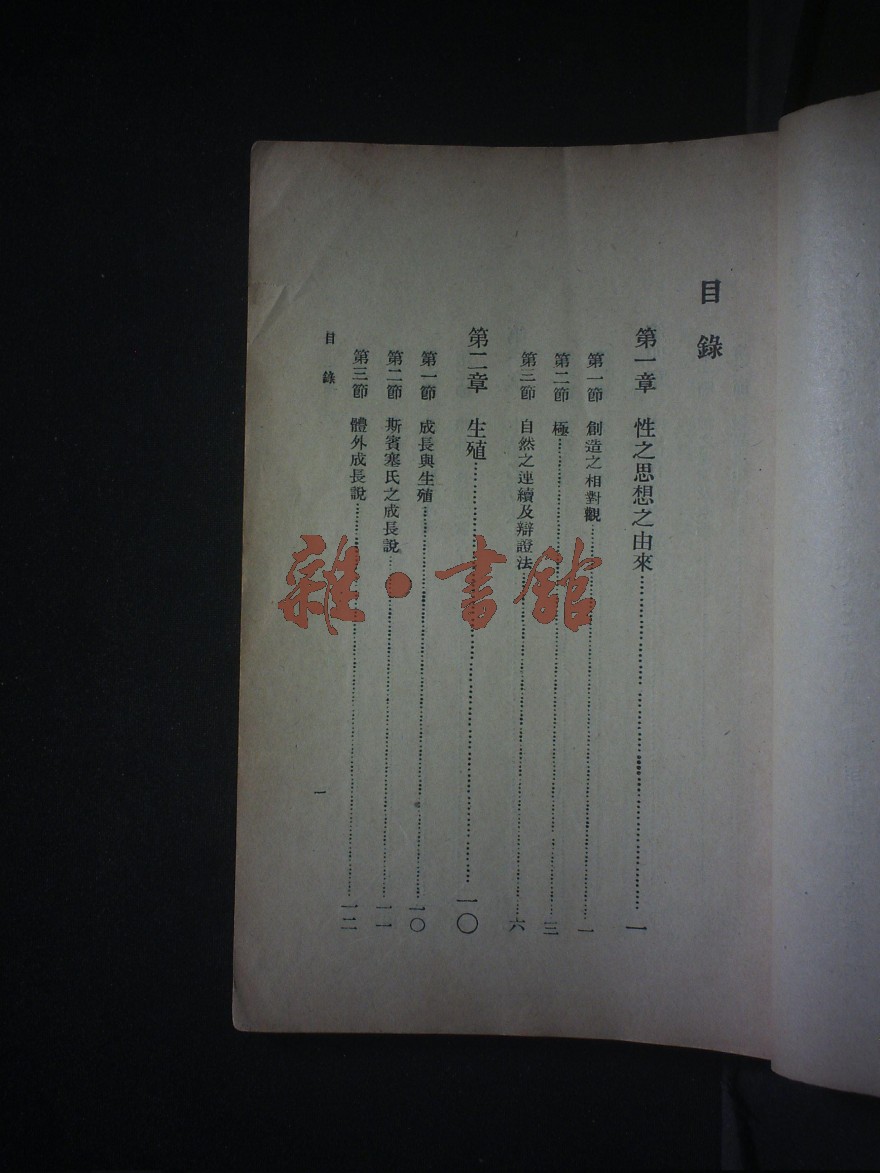 目錄
第一章　性之思想之由來……………………一
第一節　創造之相對觀……………………一
第二節　極……………………三
第三節　自然之連續及辯證法……………………六
第二章　生殖……………………一〇
第一節　成長與生殖……………………一〇
第二節　斯賓塞氏之成長說……………………一一
第三節　體外成長說……………………一二
目錄
一
雜·書館